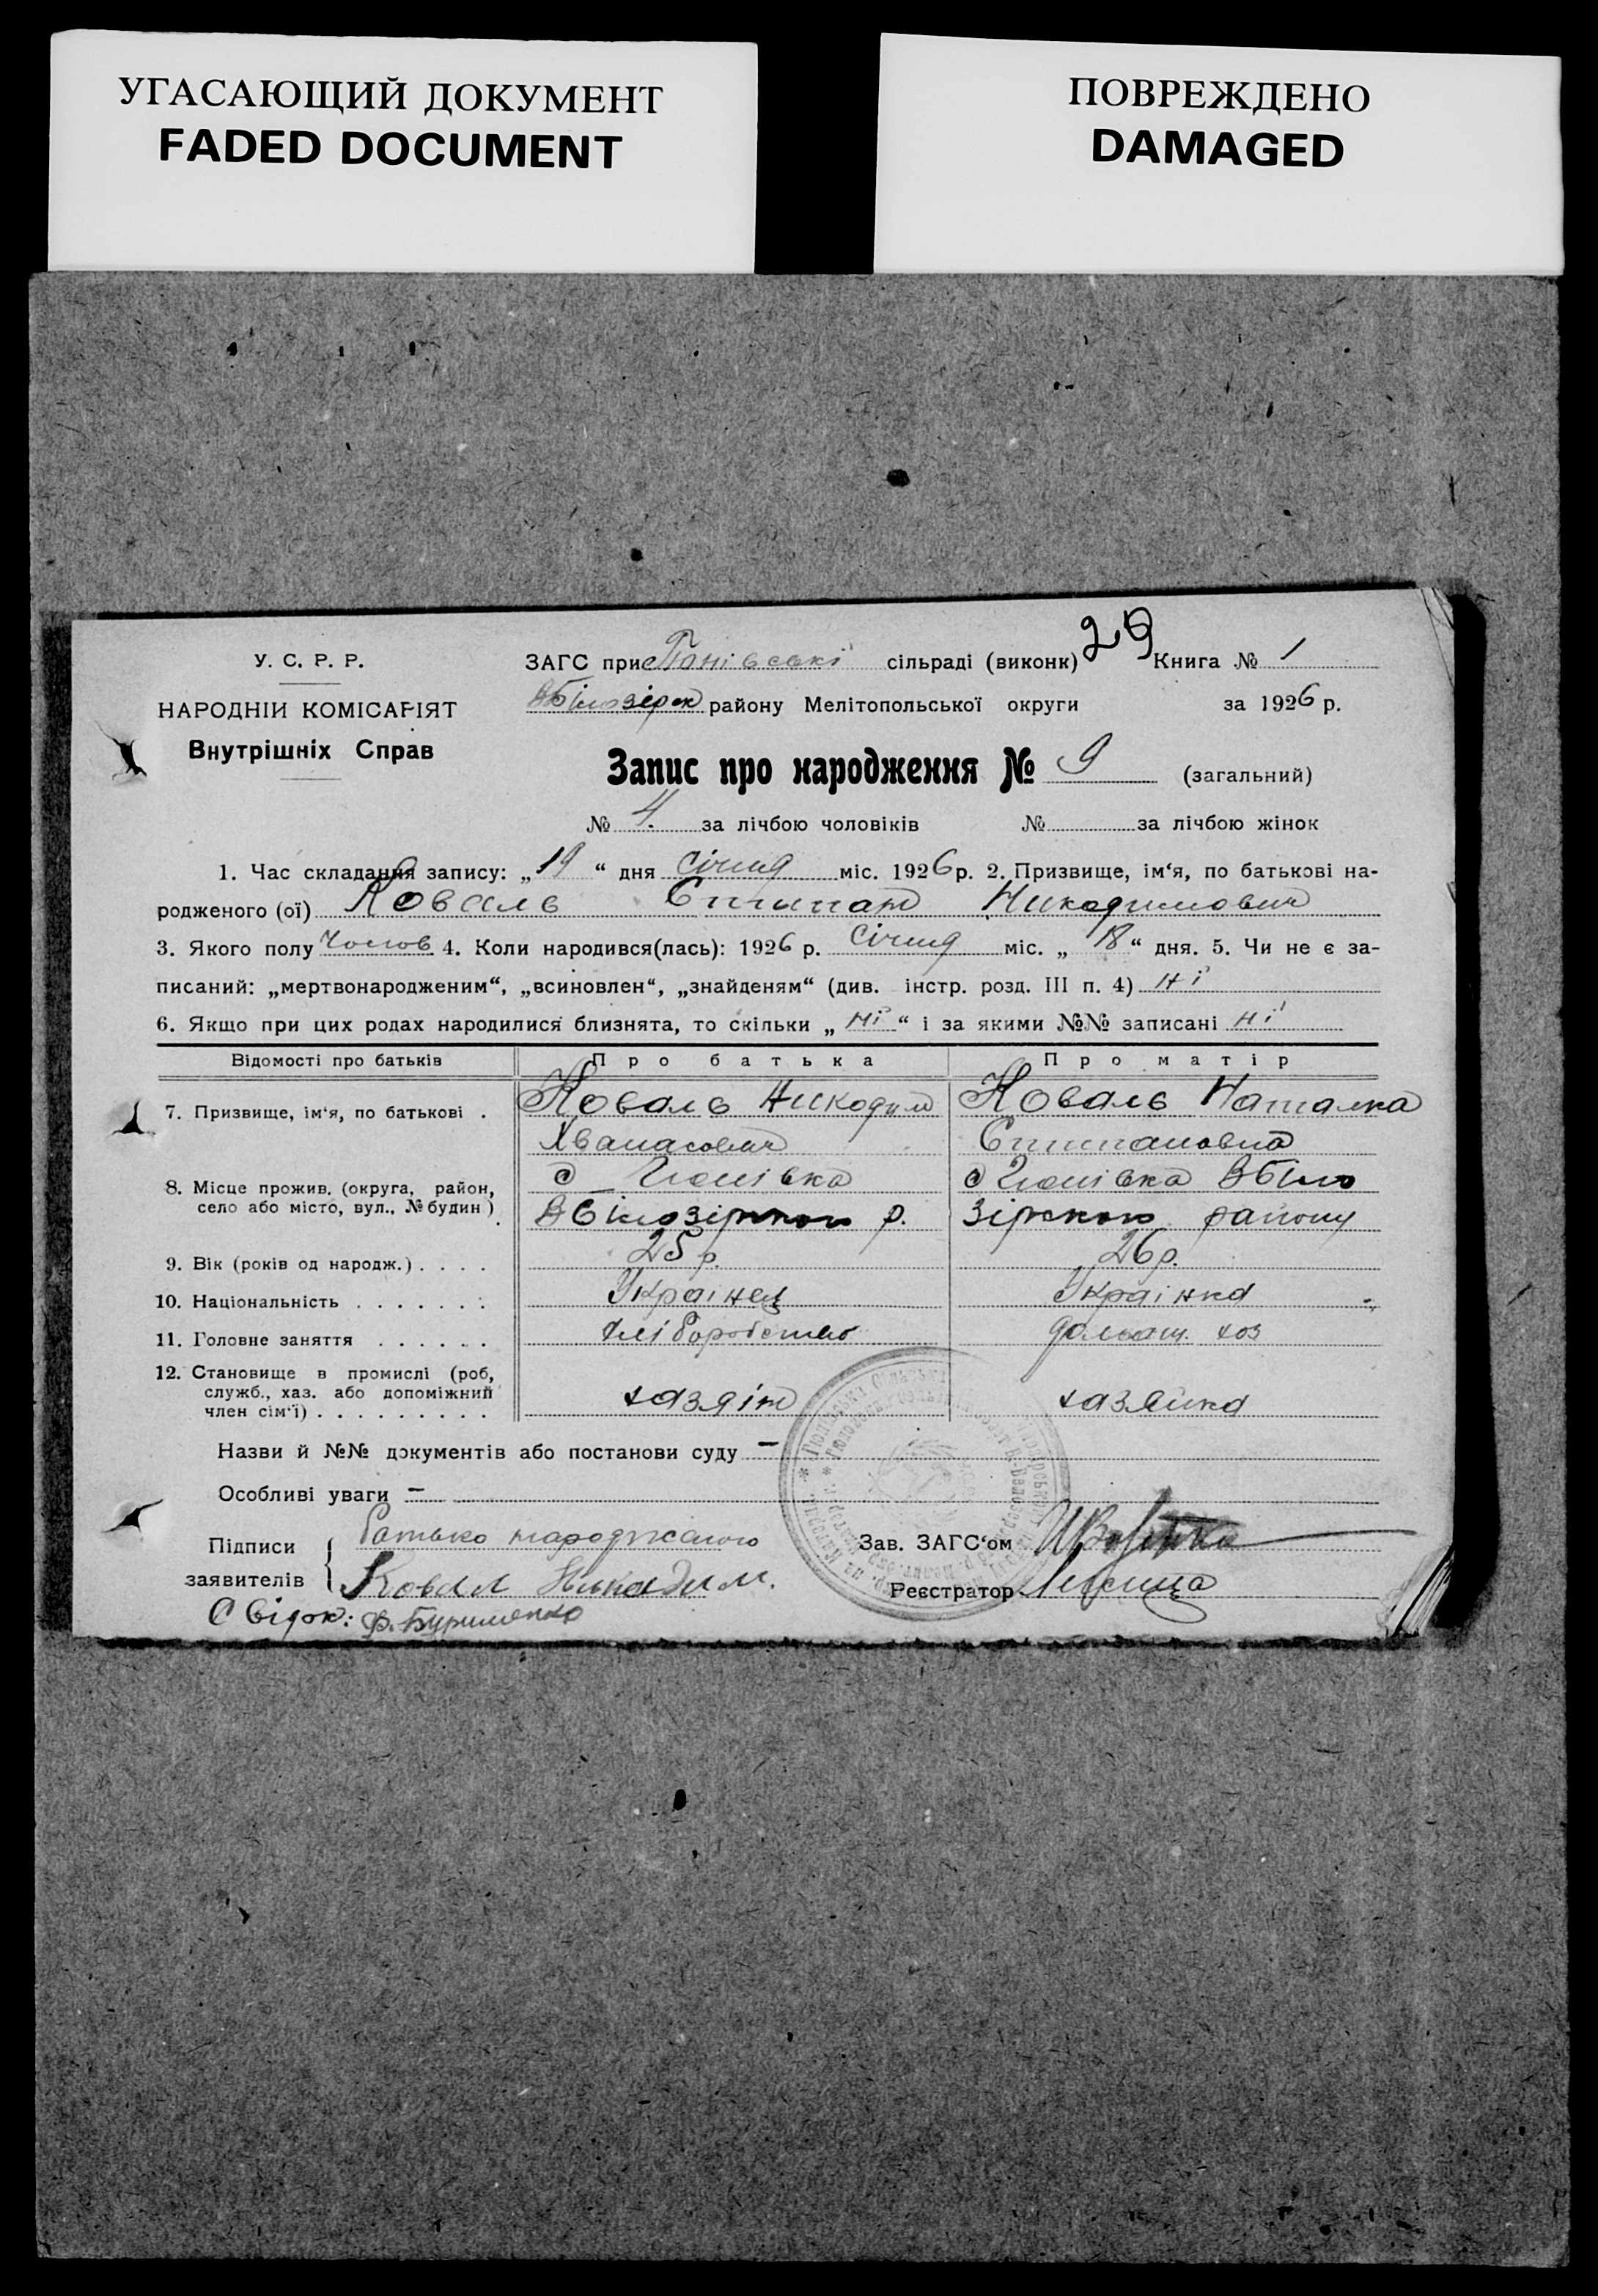 УГАСАЮЩИЙ ДОКУМЕНТ
FADED DOCUMENT
ПОВРЕЖДЕНО
DAMAGED
29
У. С. Р. Р.
НАРОДНІЙ КОМІСАРІЯТ
Внутрішніх Справ
ЗАГС при сільраді (виконк) Книга № 1
району Мелітопольської округи за 1926 р.
Запис про народження № 9 (загальний)
№ 4. за лічбою чоловіків № за лічбою жінок
1. Час складання запису: „19“ дня січня міс. 1926 р. 2. Призвище, ім‘я, по батькові на-
родженого (ої) Коваль Никодимович
3. Якого полу чолов. 4. Коли народився(лась): 1926 р. січня міс. „18“ дня. 5. Чи не є за-
писаний: „мертвонародженим“, „всиновлен“, „знайденям“ (див. інстр. розд. III п. 4) ні
6. Якщо при цих родах народилися близнята, то скільки „ні“ і за якими №№ записані ні
Відомості про батьків Про батька Про матір
7. Призвище, ім‘я, по батькові . Коваль Никодим Коваль Наталка
Хванасович
8. Місце прожив. (округа, район,
село або місто, вул., № будин) р. району
9. Вік (років од народж.) . . . . 25 р. 26 р.
10. Національність . . . . . . . Українец Українка
11. Головне заняття . . . . . . хліборобство домашн. хоз
12. Становище в промислі (роб,
служб., хаз. або допоміжний
член сім‘ї) . . . . . . . . . хазяін хазяйка
Назви й №№ документів або постанови суду —
Особливі уваги —
Підписи
заявителів
Батько народженого
Коваль Никадим.
Зав. ЗАГС‘ом
Реєстратор
Свідок: Ф. Буримечко